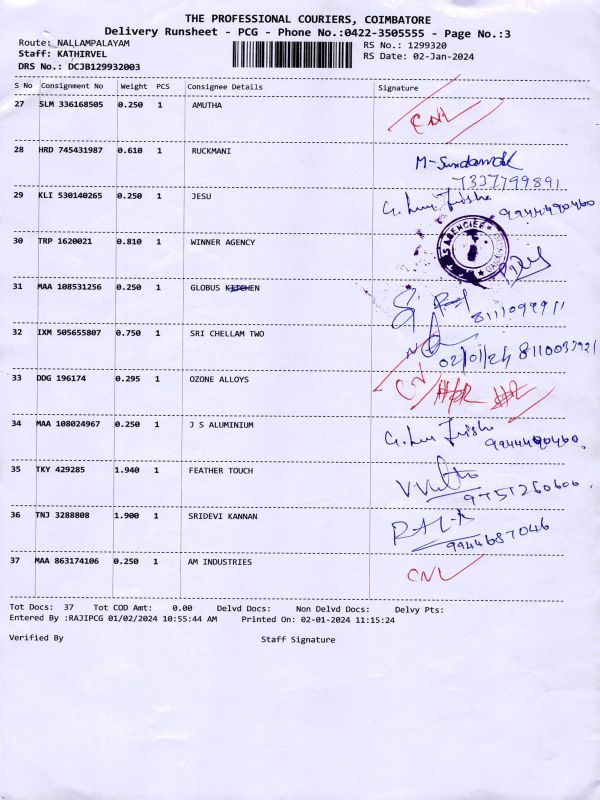 THE PROFESSIONAL COURIERS, COIMBATORE
Delivery Runsheet - PCG - Phone No.:0422-3505555 - Page No.:3
Route: NALLAMPALAYAM RS No.: 1299320
Staff: KATHIRVEL RS Date: 02-Jan-2024
DRS No.: DCJB129932003
S No Consignment No Weight PCS Consignee Details Signature
27 SLM 336168505 0.250 1 AMUTHA
28 HRD 745431987 0.610 1 RUCKMANI
7337799891
29 KLI 530140265 0.250 1 JESU
9944490460
30 TRP 1620021 0.810 1 WINNER AGENCY
31 MAA 108531256 0.250 1 GLOBUS KITCHEN
32 IXM 505655807 0.750 1 SRI CHELLAM TWO
02/01/24
33 DDG 196174 0.295 1 OZONE ALLOYS
34 MAA 108024967 0.250 1 J S ALUMINIUM
9944490460
35 TKY 429285 1.940 1 FEATHER TOUCH
9751260606
36 TNJ 3288808 1.900 1 SRIDEVI KANNAN
9944687046
37 MAA 863174106 0.250 1 AM INDUSTRIES CNL
Tot Docs: 37 Tot COD Amt: 0.00 Delvd Docs: Non Delvd Docs: Delvy Pts:
Entered By :RAJIPCG 01/02/2024 10:55:44 AM Printed On: 02-01-2024 11:15:24
Verified By Staff Signature